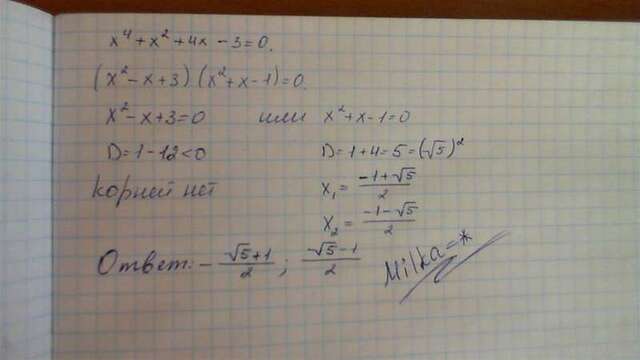 x⁴ + x² + 4x - 3 = 0.
(x² - x + 3) (x² + x - 1) = 0.
x² - x + 3 = 0 или x² + x - 1 = 0
D = 1 - 12 < 0 D = 1 + 4 = 5 = (√5)²
корней нет x₁ = (-1 + √5)/2
x₂ = (-1 - √5)/2
Ответ: - (√5 + 1)/2 ; (√5 - 1)/2
Milka=*